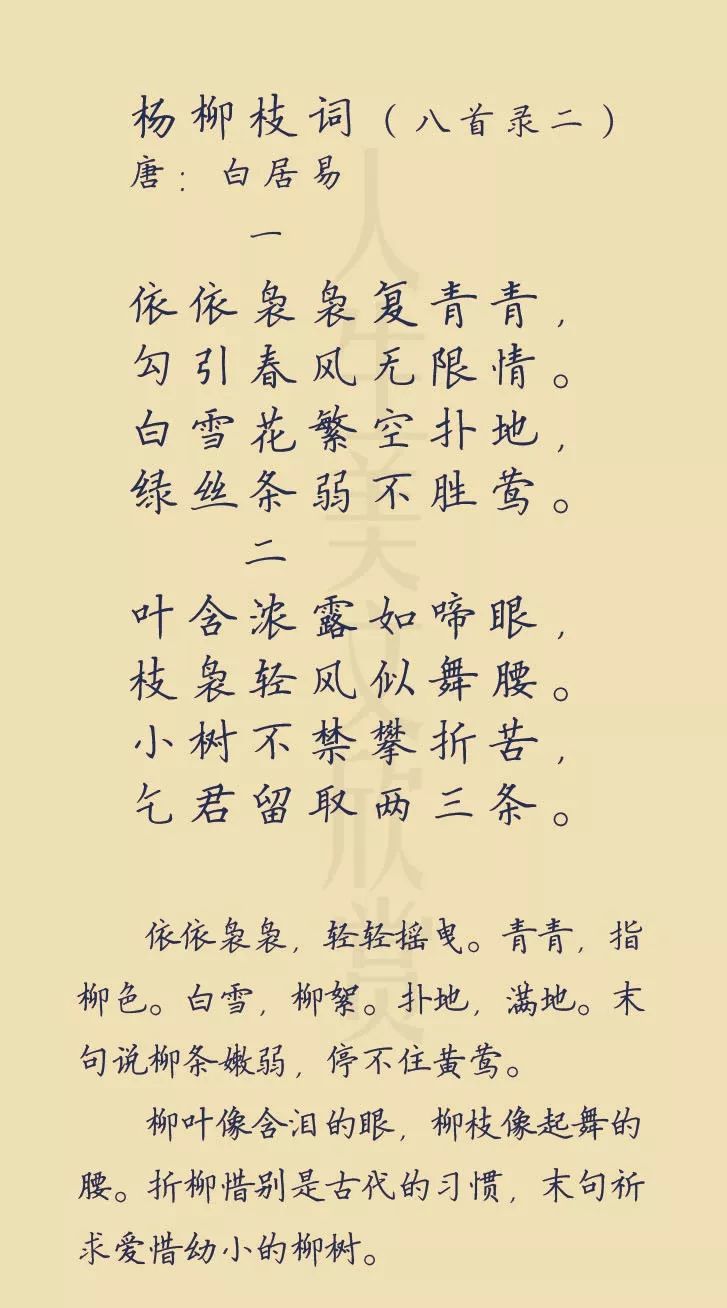 杨柳枝词（八首录二）
唐：白居易
一
依依袅袅复青青，
勾引春风无限情。
白雪花繁空扑地，
绿丝条弱不胜莺。
二
叶含浓露如啼眼，
枝袅轻风似舞腰。
小树不禁攀折苦，
乞君留取两三条。
依依袅袅，轻轻摇曳。青青，指
柳色。白雪，柳絮。扑地，满地。末
句说柳条嫩弱，停不住黄莺。
柳叶像含泪的眼，柳枝像起舞的
腰。折柳惜别是古代的习惯，末句祈
求爱惜幼小的柳树。
人生美文欣赏